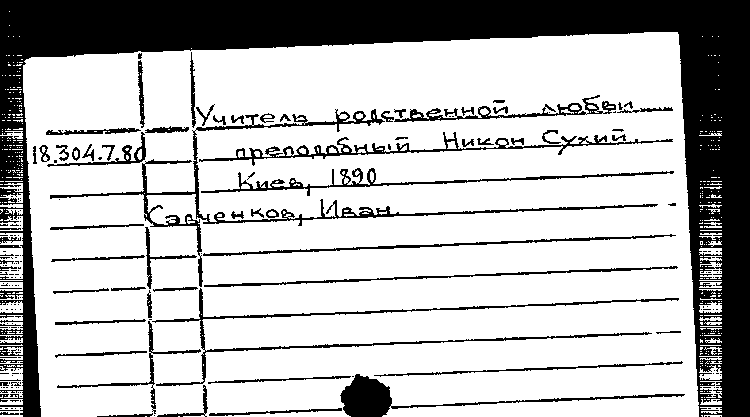 Учитель родственной любви
18.304.7.80 преподобный Никон Сухий.
Киев, 1890
Савченков, Иван.